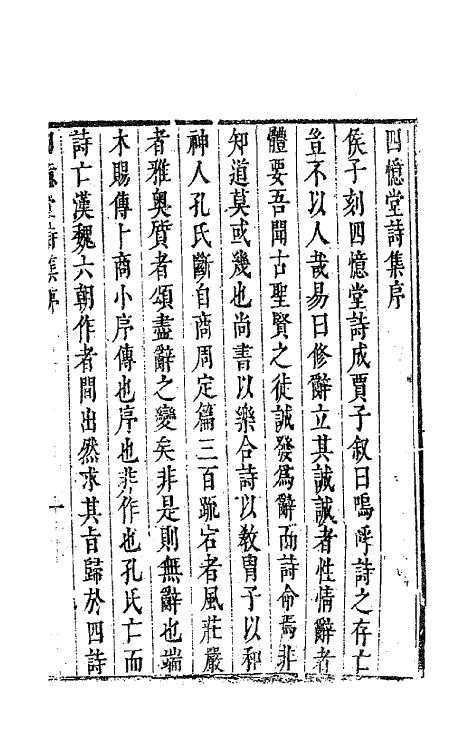 四憶堂詩集序
侯子刻四憶堂詩成賈子叙曰嗚呼詩之存亡
豈不以人哉易曰修辭立其誠誠者性情辭者
體要吾聞古聖賢之徒誠發爲辭而詩命焉非
知道莫或幾也尚書以樂合詩以敎胄子以和
神人孔氏斷自商周定篇三百跪宕者風莊嚴
者雅奥質者頌盡辭之變矣非是則無辭也端
木賜傳卜商小序傳也序也非作也孔氏亡而
詩亡漢魏六朝作者間出然求其旨歸於四詩
四憶堂詩集序
一